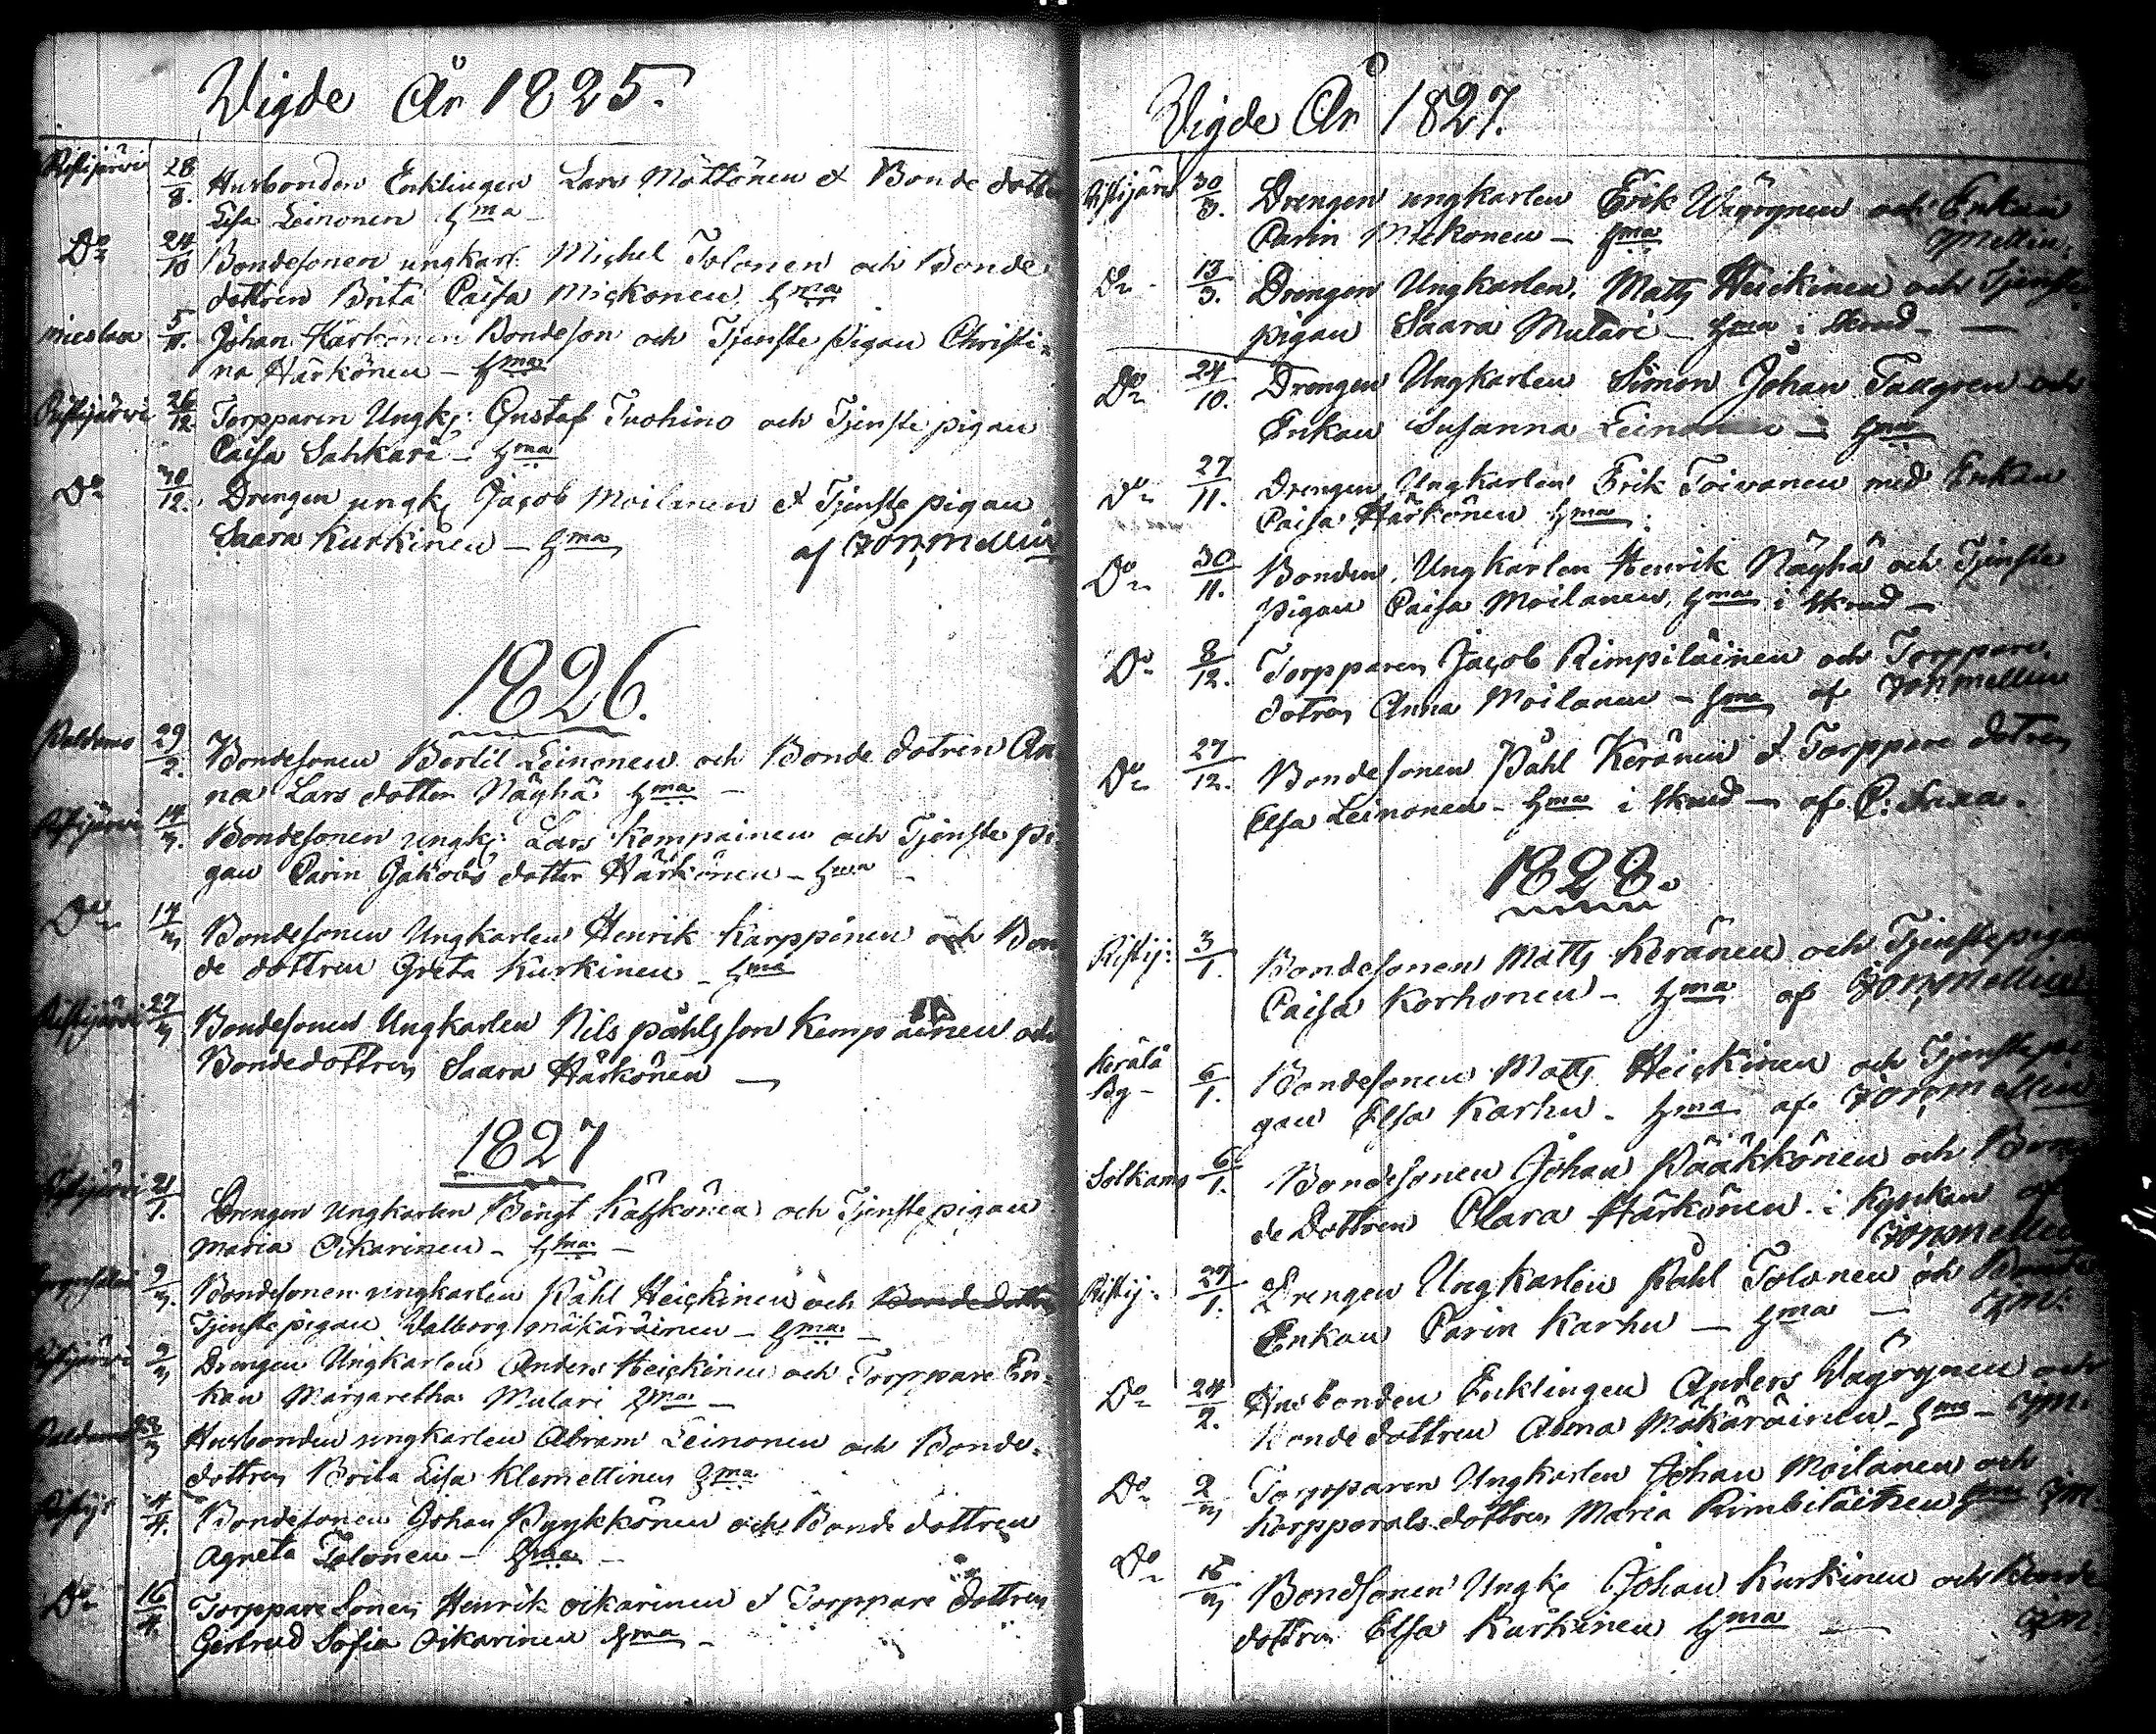 Vigde År 1825.
Ristijärvi 28/8. Husbonden Enklingen Lars Möttönen et Bonde dottr
Lisa Leinonen hma
Do 24/10 Bondesonen ungkarl. Michel Tolonen och Bonde
dottren Brita Caisa Mickonen hma
Mieslax 5/11. Johan Karkonen Bondeson och Tjenste pigan Christi=
na Härkönen – hma
Ristijärvi 26/12 Torpparen Ungk: Gustaf Tuohino och Tjenste pigan
Caisa Sahkari – hma
Do 30/12. Drengen ungk: Jacob Moilanen et Tjenste pigan
Saara Kurkinen – hma af Jon Mellin
1826.
Paldamo 29/2. Bondesonen Bertil Leinonen och Bonde dotren An
na Lars dotter Näyhä hma –
Ristijärvi 14/3. Bondesonen ungk: Lars Kempainen och Tjenste pi
gan Carin Jakobs dotter Härkönen – hma –
Do 14/3 Bondesonen Ungkarlen Henrik Karppinen och Bon
de dottren Greta Kurkinen – hma
Ristijärvi 27/3 Bondesonen Ungkarlen Nils påhlsson Kempainen och
Bondedottren Saara Härkönen –
1827
Ristijärvi 21/1. Drengen Ungkarlen Bengt Kähkönen och Tjenste pigan
Maria Oikarinen – hma –
9/3. Bondesonen ungkarlen Påhl Heickinen och Bonde dottren
Tjenste pigan Walborg Mäkäräinen – hma –
Ristijärvi 9/3 Drengen Ungkarlen Anders Heickinen och Torppare En=
kan Margaretha Mulari hma –
Paldamo 23/3 Husbonden ungkarlen Abram Leinonen och Bonde=
dottren Brita Lisa Klemettinen hma
Ristij: 4/4. Bondesonen Johan Pyykkönen och Bonde dottren
Agneta Tolonen – hma –
Do 16/4. Torppare Sonen Henrik Oikarinen et Torppare dottren
Gertrud Sofia Oikarinen hma –
Vigde År 1827.
Ristijärvi 30/3. Drengen ungkarlen Erik Wäyrynen och Enkan
Carin Mickonen – hma JMellin.
Do 13/3. Drengen Ungkarlen, Matts Heickinen och Tjenste
pigan Saara Mulari – hma i skrud –
Do 24/10. Drengen Ungkarlen Simon Johan Tallgren och
Enkan Susanna Leinonen – hma
Do 27/11. Drengen Ungkarlen Erik Toivanen med Enkan
Caisa Härkönen hma
Do 30/11. Bonden, Ungkarlen Henrik Näyhä och Tjenste
pigan Caisa Moilanen, hma i skrud –
Do 8/12. Torpparen Jacob Rimpiläinen och Torppare,
dotren Anna Moilanen – hma af Jon Mellin
Do 27/12. Bondesonen Påhl Keränen et Torppare dotren
Elsa Leinonen – hma i skrud – af C: Saxa.
1828.
Ristij: 3/1. Bondesonen Matts Keränen och Tjenstepigan
Caisa Korhonen – hma af Jon Mellin
Kerälä By – 6/1. Bondesonen Matts Heickinen och Tjenstepi
gan Elsa Karhu – hma af Jon Mellin
Sotkamo 6/1. Bondesonen Johan Pääkkönen och Bon
de Dottren Clara Härkönen i Kyrkan af
Jon Mellin
Ristij: 27/1. Drengen Ungkarlen Påhl Tolonen och
Enkan Carin Karhu – hma – JM.
Do 24/2. Husbonden Enklingen Anders Wäyrynen och
Bonde dottren Anna Mäkäräinen – hma – JM.
Do 2/3 Torpparen Ungkarlen Johan Moilanen och
Korpporals dottren Maria Rimbiläinen hma JM.
Do 16/3 Bondsonen Ungk: Johan Kurkinen och Bonde
dottren Elsa Kurkinen hma – JM.